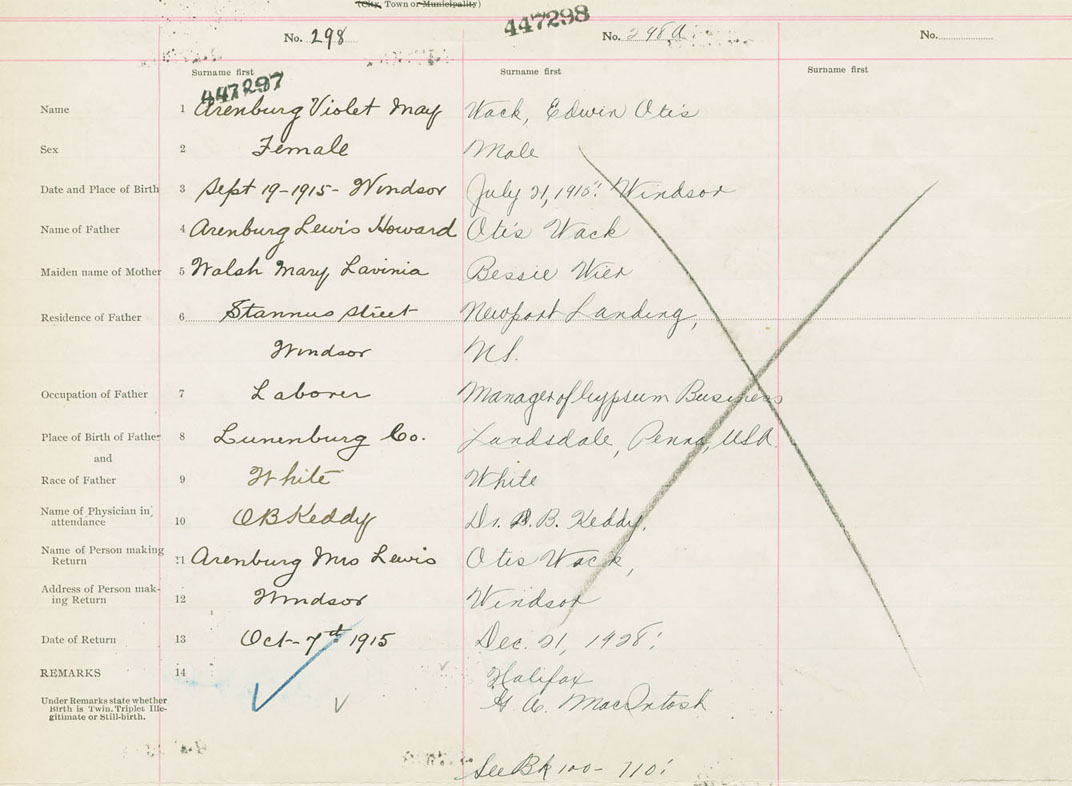 (City, Town or Municipality)
No. 298
447298
No. 298 A
No.
Surname first
Surname first
Surname first
447297
Name 1 Arenburg Violet May Wack, Edwin Otis
Sex 2 Female Male
Date and Place of Birth 3 Sept 19-1915- Windsor July 21, 1915. Windsor
Name of Father 4 Arenburg Lewis Howard Otis Wack
Maiden name of Mother 5 Walsh Mary Lavinia Bessie Wier
Residence of Father 6 Stannus street Newport Landing,
Windsor N.S.
Occupation of Father 7 Laborer Manager of Gypsum Business
Place of Birth of Father 8 Lunenburg Co. Landsdale, Penna, USA.
and
Race of Father 9 White White
Name of Physician in attendance 10 OB Keddy Dr. B. Keddy,
Name of Person making Return 11 Arenburg Mrs Lewis Otis Wack,
Address of Person making Return 12 Windsor Windsor
Date of Return 13 Oct- 7th 1915 Dec. 21, 1928.
REMARKS 14 Halifax
Under Remarks state whether Birth is Twin, Triplet Illegitimate or Still-birth.
A. MacIntosh
See Bk 100- 710.